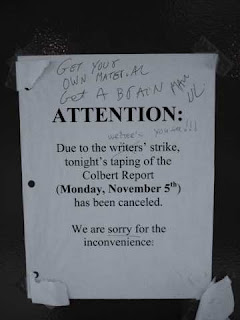 GET YOUR
OWN MATERIAL
GET A BRAIN MAN
ATTENTION:
Due to the writers' strike,
tonight's taping of the
Colbert Report
(Monday, November 5th)
has been canceled.
We are sorry for the
inconvenience.